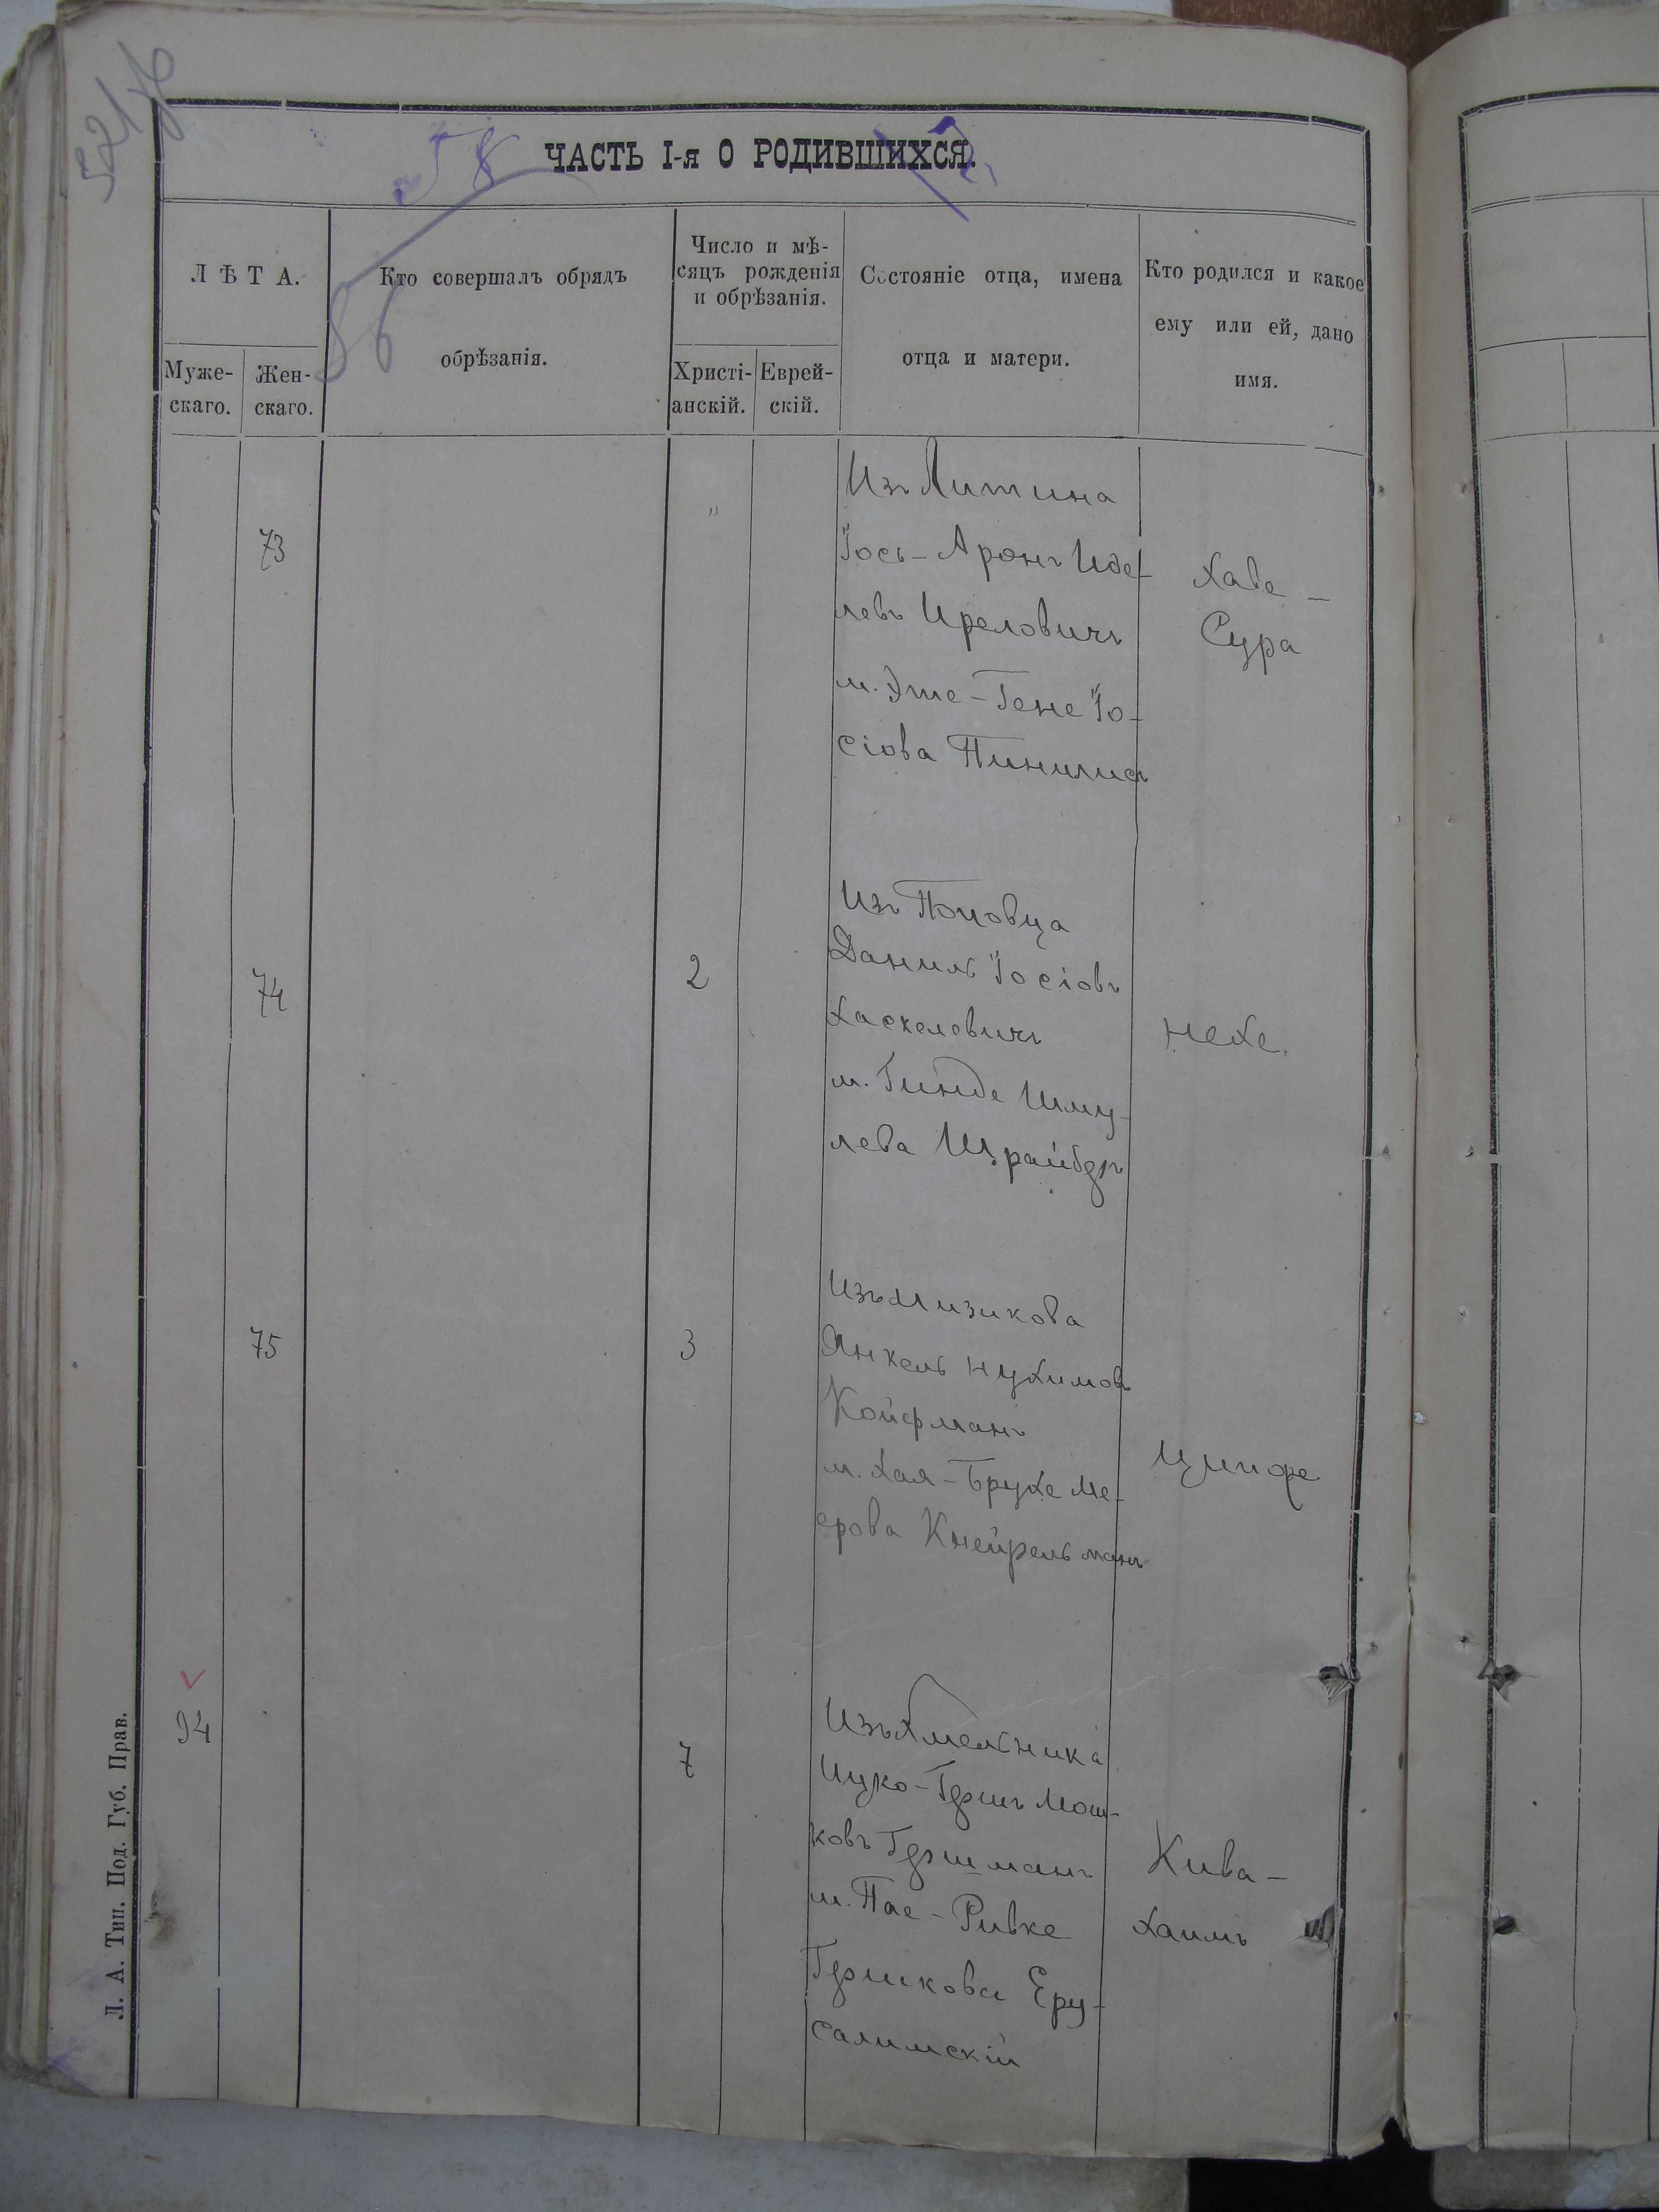 521
58
56
ЧАСТЬ I-я О РОДИВШИХСЯ.
ЛѢТА.
Муже-
скаго.
Жен-
скаго.
Кто совершалъ обрядъ
обрѣзанія.
Число и мѣ-
сяцъ рожденія
и обрѣзанія.
Христі-
анскій.
Еврей-
скій.
Состояніе отца, имена
отца и матери.
Кто родился и какое
ему или ей, дано
имя.
73
"
Изъ Литина
Іось-Аронъ Иде-
левъ Ирeловичъ
м. Эте-Гене Іо-
сіова Пинилисъ
Хаве-
Сура
74
2
Изъ Поповца
Даниль Іосіовъ
Хаскелевичъ
м. Гинде Шму-
лева Шрайберъ
Нехе.
75
3
Изъ Мизикова
Янкель Нухимовъ
Койфманъ
м. Хая-Брухе Ме-
ерова Кнейрельманъ
Ципре
94
7
Изъ Хмельника
Ицко-Гершъ Мош-
ковъ Гершманъ
м. Пае-Ривке
Гершкова Еру-
салимскій
Кива-
Хаимъ
Л. А. Тип. Под. Губ. Прав.